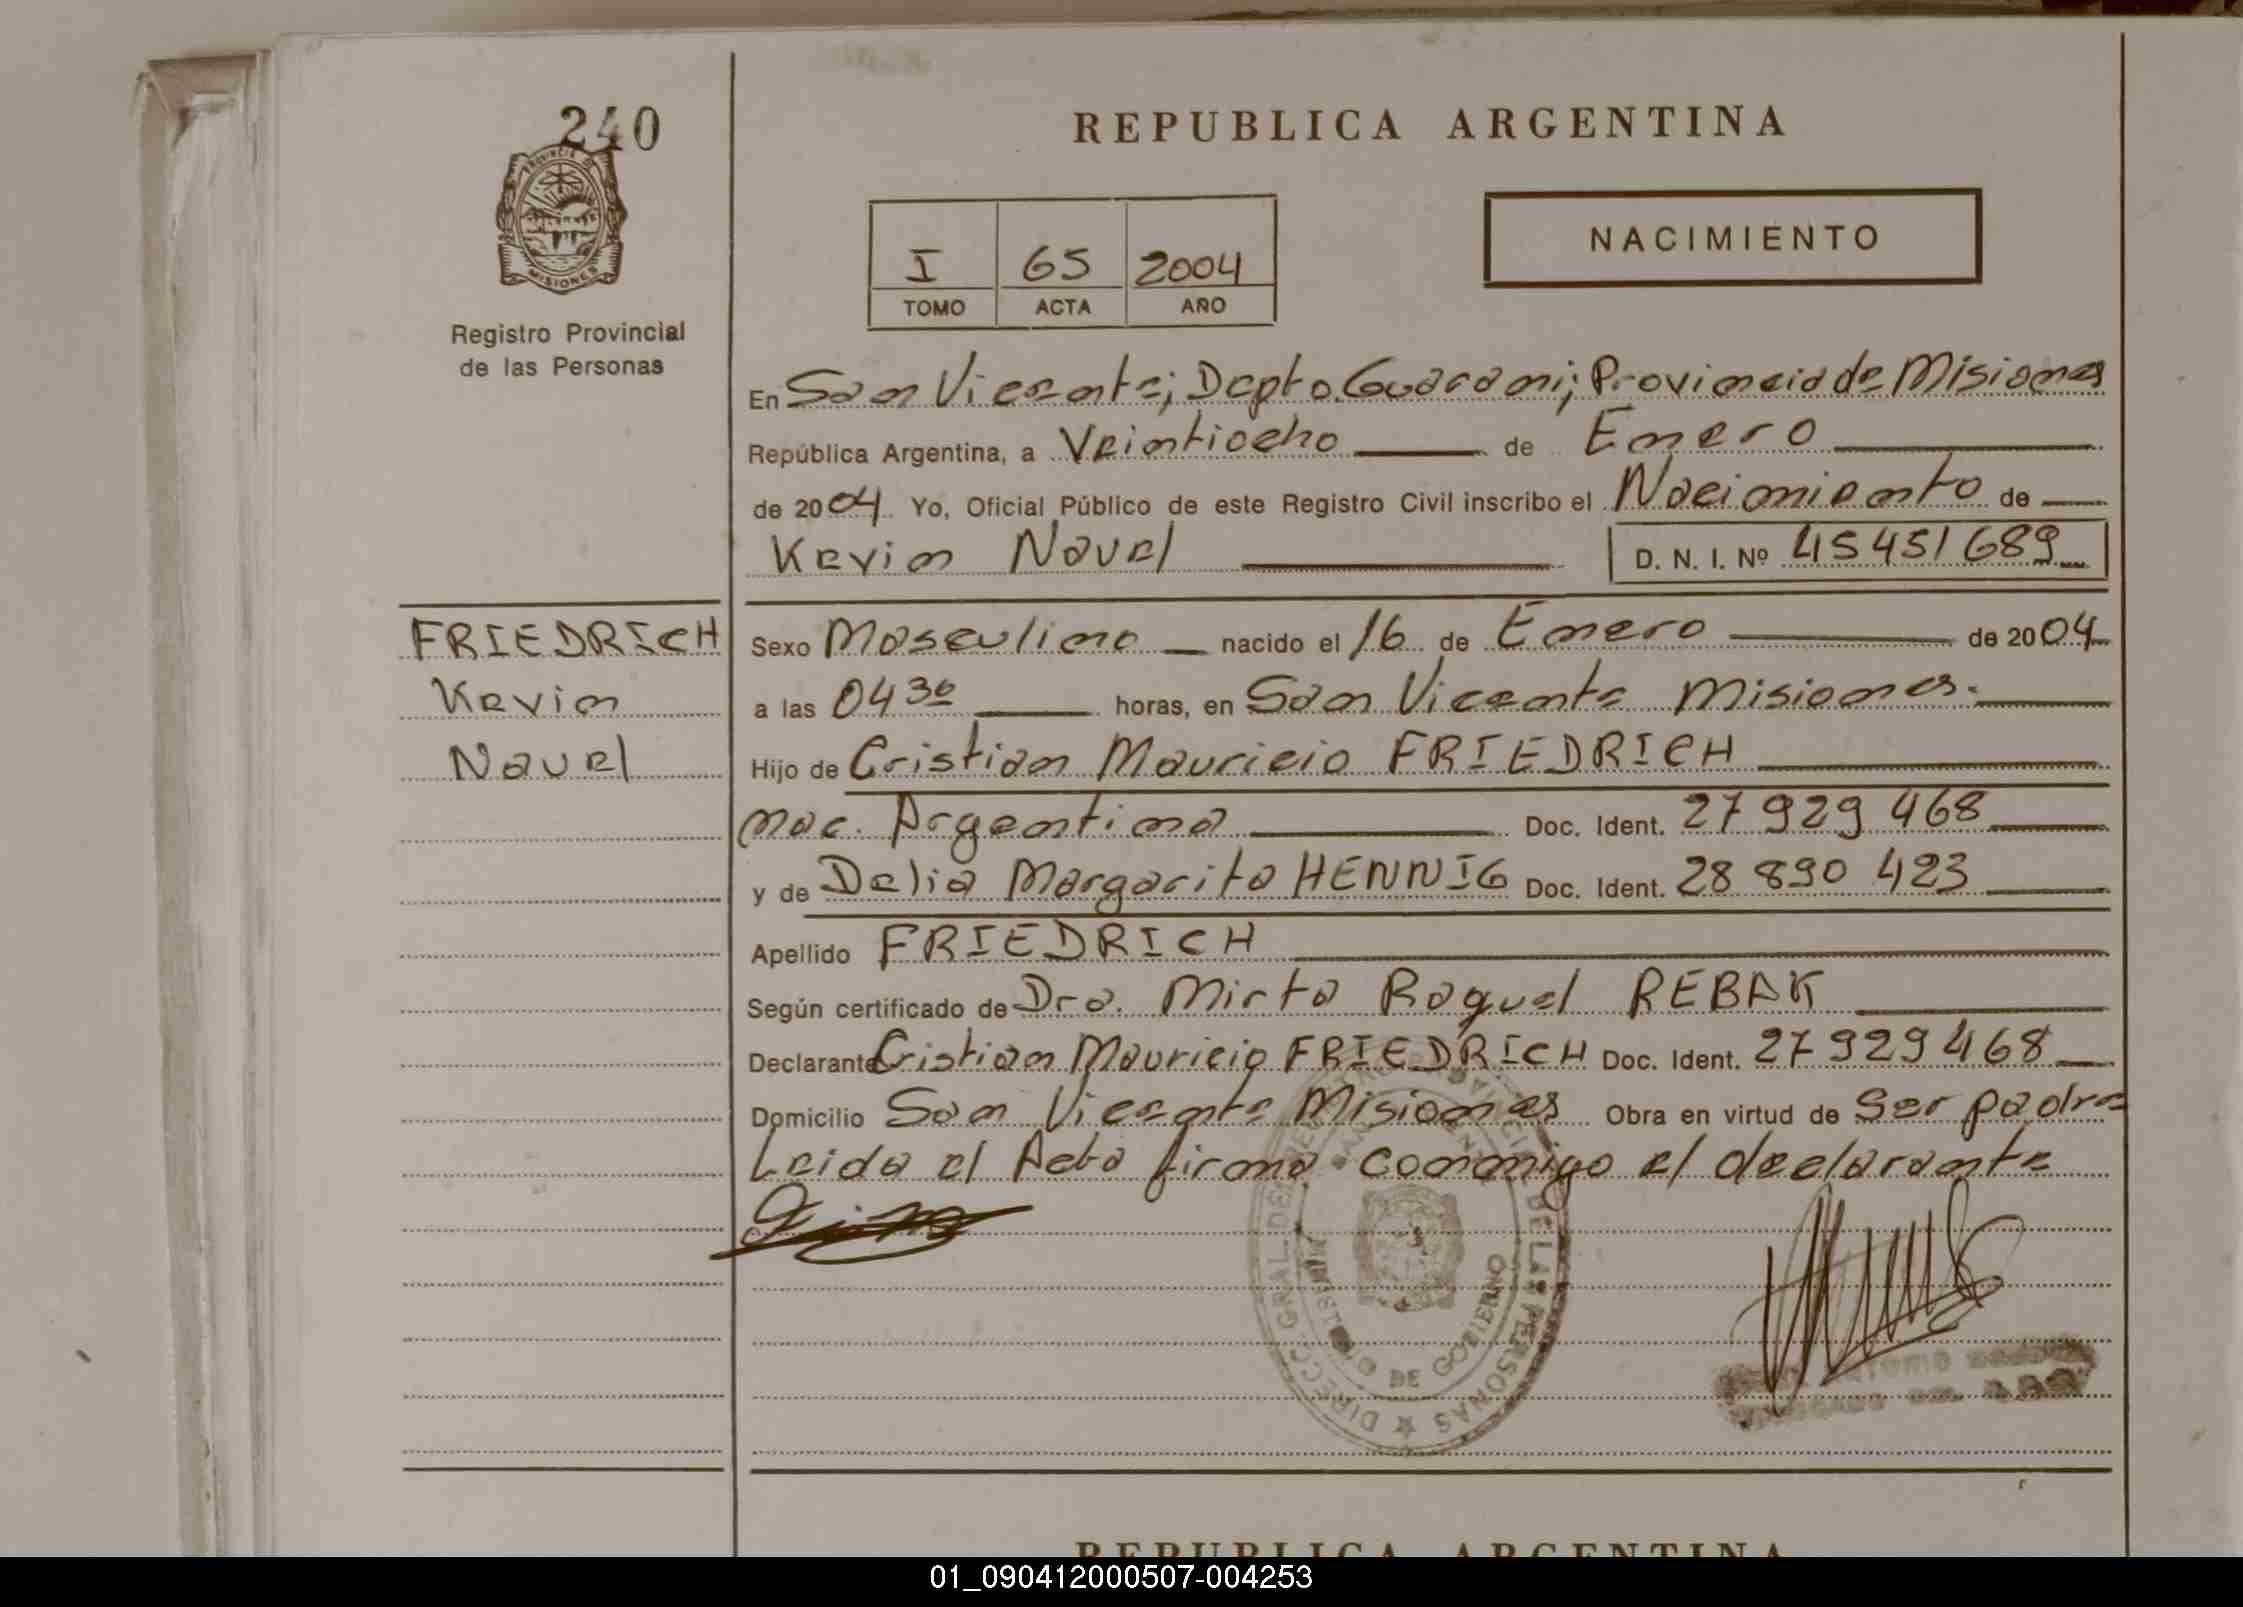 240
PROVINCIA DE
MISIONES
Registro Provincial
de las Personas
REPUBLICA ARGENTINA
I 65 2004
TOMO ACTA AÑO
NACIMIENTO
En San Vicente; Depto. Guarani; Provincia de Misiones
República Argentina, a Veintiocho de Enero
de 2004 Yo, Oficial Público de este Registro Civil inscribo el Nacimiento de
Kevin Nauel D. N. I. Nº 45451689
FRIEDRICH
Kevin
Nauel
Sexo Masculino nacido el 16 de Enero de 2004
a las 04 30 horas, en San Vicente Misiones.
Hijo de Cristian Mauricio FRIEDRICH
nac. Argentina Doc. Ident. 27 929 468
y de Delia Margarita HENNIG Doc. Ident. 28 890 423
Apellido FRIEDRICH
Según certificado de Dra. Mirta Raquel REBAK
Declarante Cristian Mauricio FRIEDRICH Doc. Ident. 27 929 468
Domicilio San Vicente Misiones Obra en virtud de Ser padre
Leida el Acta firma conmigo el declarante
MINISTERIO DE GOBIERNO
PERSONAS
REPUBLICA ARGENTINA
01_090412000507-004253